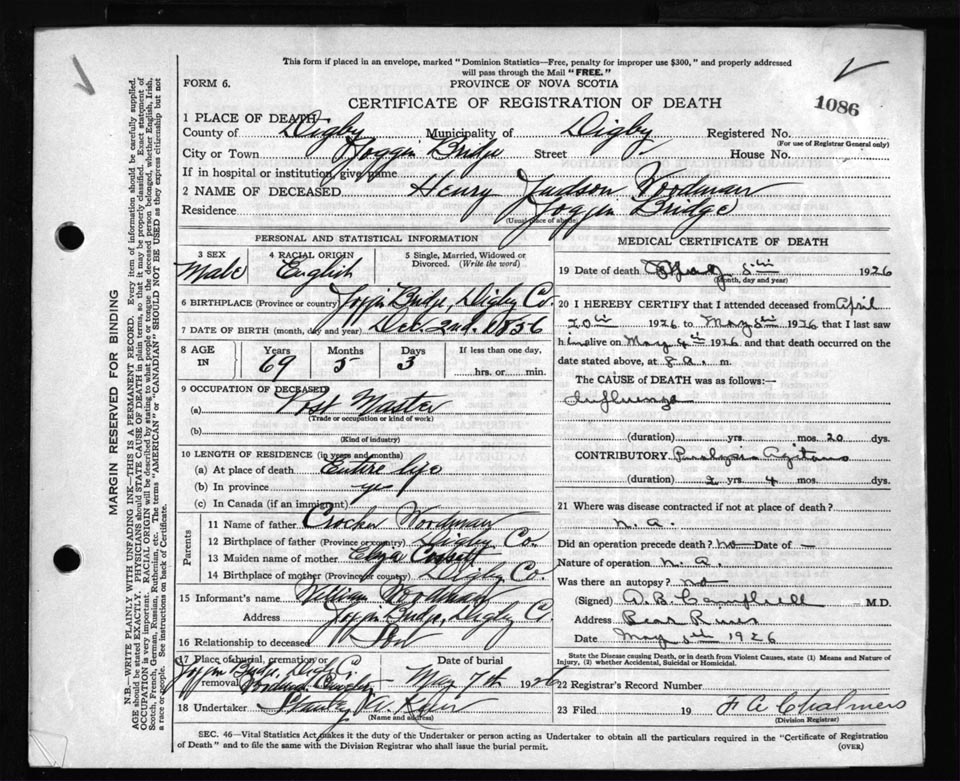 This form if placed in an envelope, marked "Dominion Statistics—Free, penalty for improper use $300," and properly addressed
will pass through the Mail "FREE."
FORM 6.
PROVINCE OF NOVA SCOTIA
CERTIFICATE OF REGISTRATION OF DEATH
1086
1 PLACE OF DEATH
County of Digby Municipality of Digby Registered No.
(For use of Registrar General only)
City or Town Joggin Bridge Street House No.
If in hospital or institution, give name
2 NAME OF DECEASED Henry Judson Woodman
Residence Joggin Bridge
(Usual place of abode)
PERSONAL AND STATISTICAL INFORMATION
3 SEX Male
4 RACIAL ORIGIN English
5 Single, Married, Widowed or Divorced. (Write the word)
6 BIRTHPLACE (Province or country) Joggin Bridge, Digby Co.
7 DATE OF BIRTH (month, day and year) Dec. 2nd. 1856
8 AGE IN Years 69 Months 5 Days 3 If less than one day, hrs. or min.
9 OCCUPATION OF DECEASED
(a) Post Master
(Trade or occupation or kind of work)
(b)
(Kind of industry)
10 LENGTH OF RESIDENCE (in years and months)
(a) At place of death Entire life
(b) In province yes
(c) In Canada (if an immigrant)
Parents
11 Name of father Crocker Woodman
12 Birthplace of father (Province or country) Digby Co.
13 Maiden name of mother Eliza
14 Birthplace of mother (Province or country) Digby Co.
15 Informant's name William Woodman
Address Joggin Bridge, Digby C
16 Relationship to deceased Son
17 Place of burial, cremation or removal Joggin Bridge, Digby C.
Woodman Cemetery
Date of burial May 7th 1926
18 Undertaker Stanley
(Name and address)
MEDICAL CERTIFICATE OF DEATH
19 Date of death May 5th 1926
(Month, day and year)
20 I HEREBY CERTIFY that I attended deceased from April
20th 1926 to May 5th 1926 that I last saw
him alive on May 4th 1926 and that death occurred on the
date stated above, at 8 a. m.
The CAUSE of DEATH was as follows:—
Influenza
(duration) yrs. mos. 20 dys.
CONTRIBUTORY Paralysis Agitans
(duration) 2 yrs. 4 mos. dys.
21 Where was disease contracted if not at place of death?
N. a.
Did an operation precede death? no Date of —
Nature of operation N. a.
Was there an autopsy? no
(Signed) A. B. Campbell M.D.
Address Bear River
Date May 5th 1926
State the Disease causing Death, or in death from Violent Causes, state (1) Means and Nature of Injury, (2) whether Accidental, Suicidal or Homicidal.
22 Registrar's Record Number
23 Filed 19 F A Chalmers
(Division Registrar)
SEC. 46—Vital Statistics Act, makes it the duty of the Undertaker or person acting as Undertaker to obtain all the particulars required in the "Certificate of Registration
of Death" and to file the same with the Division Registrar who shall issue the burial permit.
(OVER)
MARGIN RESERVED FOR BINDING
N.B.—WRITE PLAINLY WITH UNFADING INK—THIS IS A PERMANENT RECORD. Every item of information should be carefully supplied.
AGE should be stated EXACTLY. PHYSICIANS should STATE CAUSE OF DEATH in plain terms, so that it may be properly classified. Exact statement of
OCCUPATION is very important. RACIAL ORIGIN will be described by stating to what people or tongue the deceased person belonged, whether English, Irish,
Scotch, French, German, Russian, Ruthenian, etc. The terms "AMERICAN" or "CANADIAN" SHOULD NOT BE USED as they express citizenship but not
a race or people. See instructions on back of Certificate.